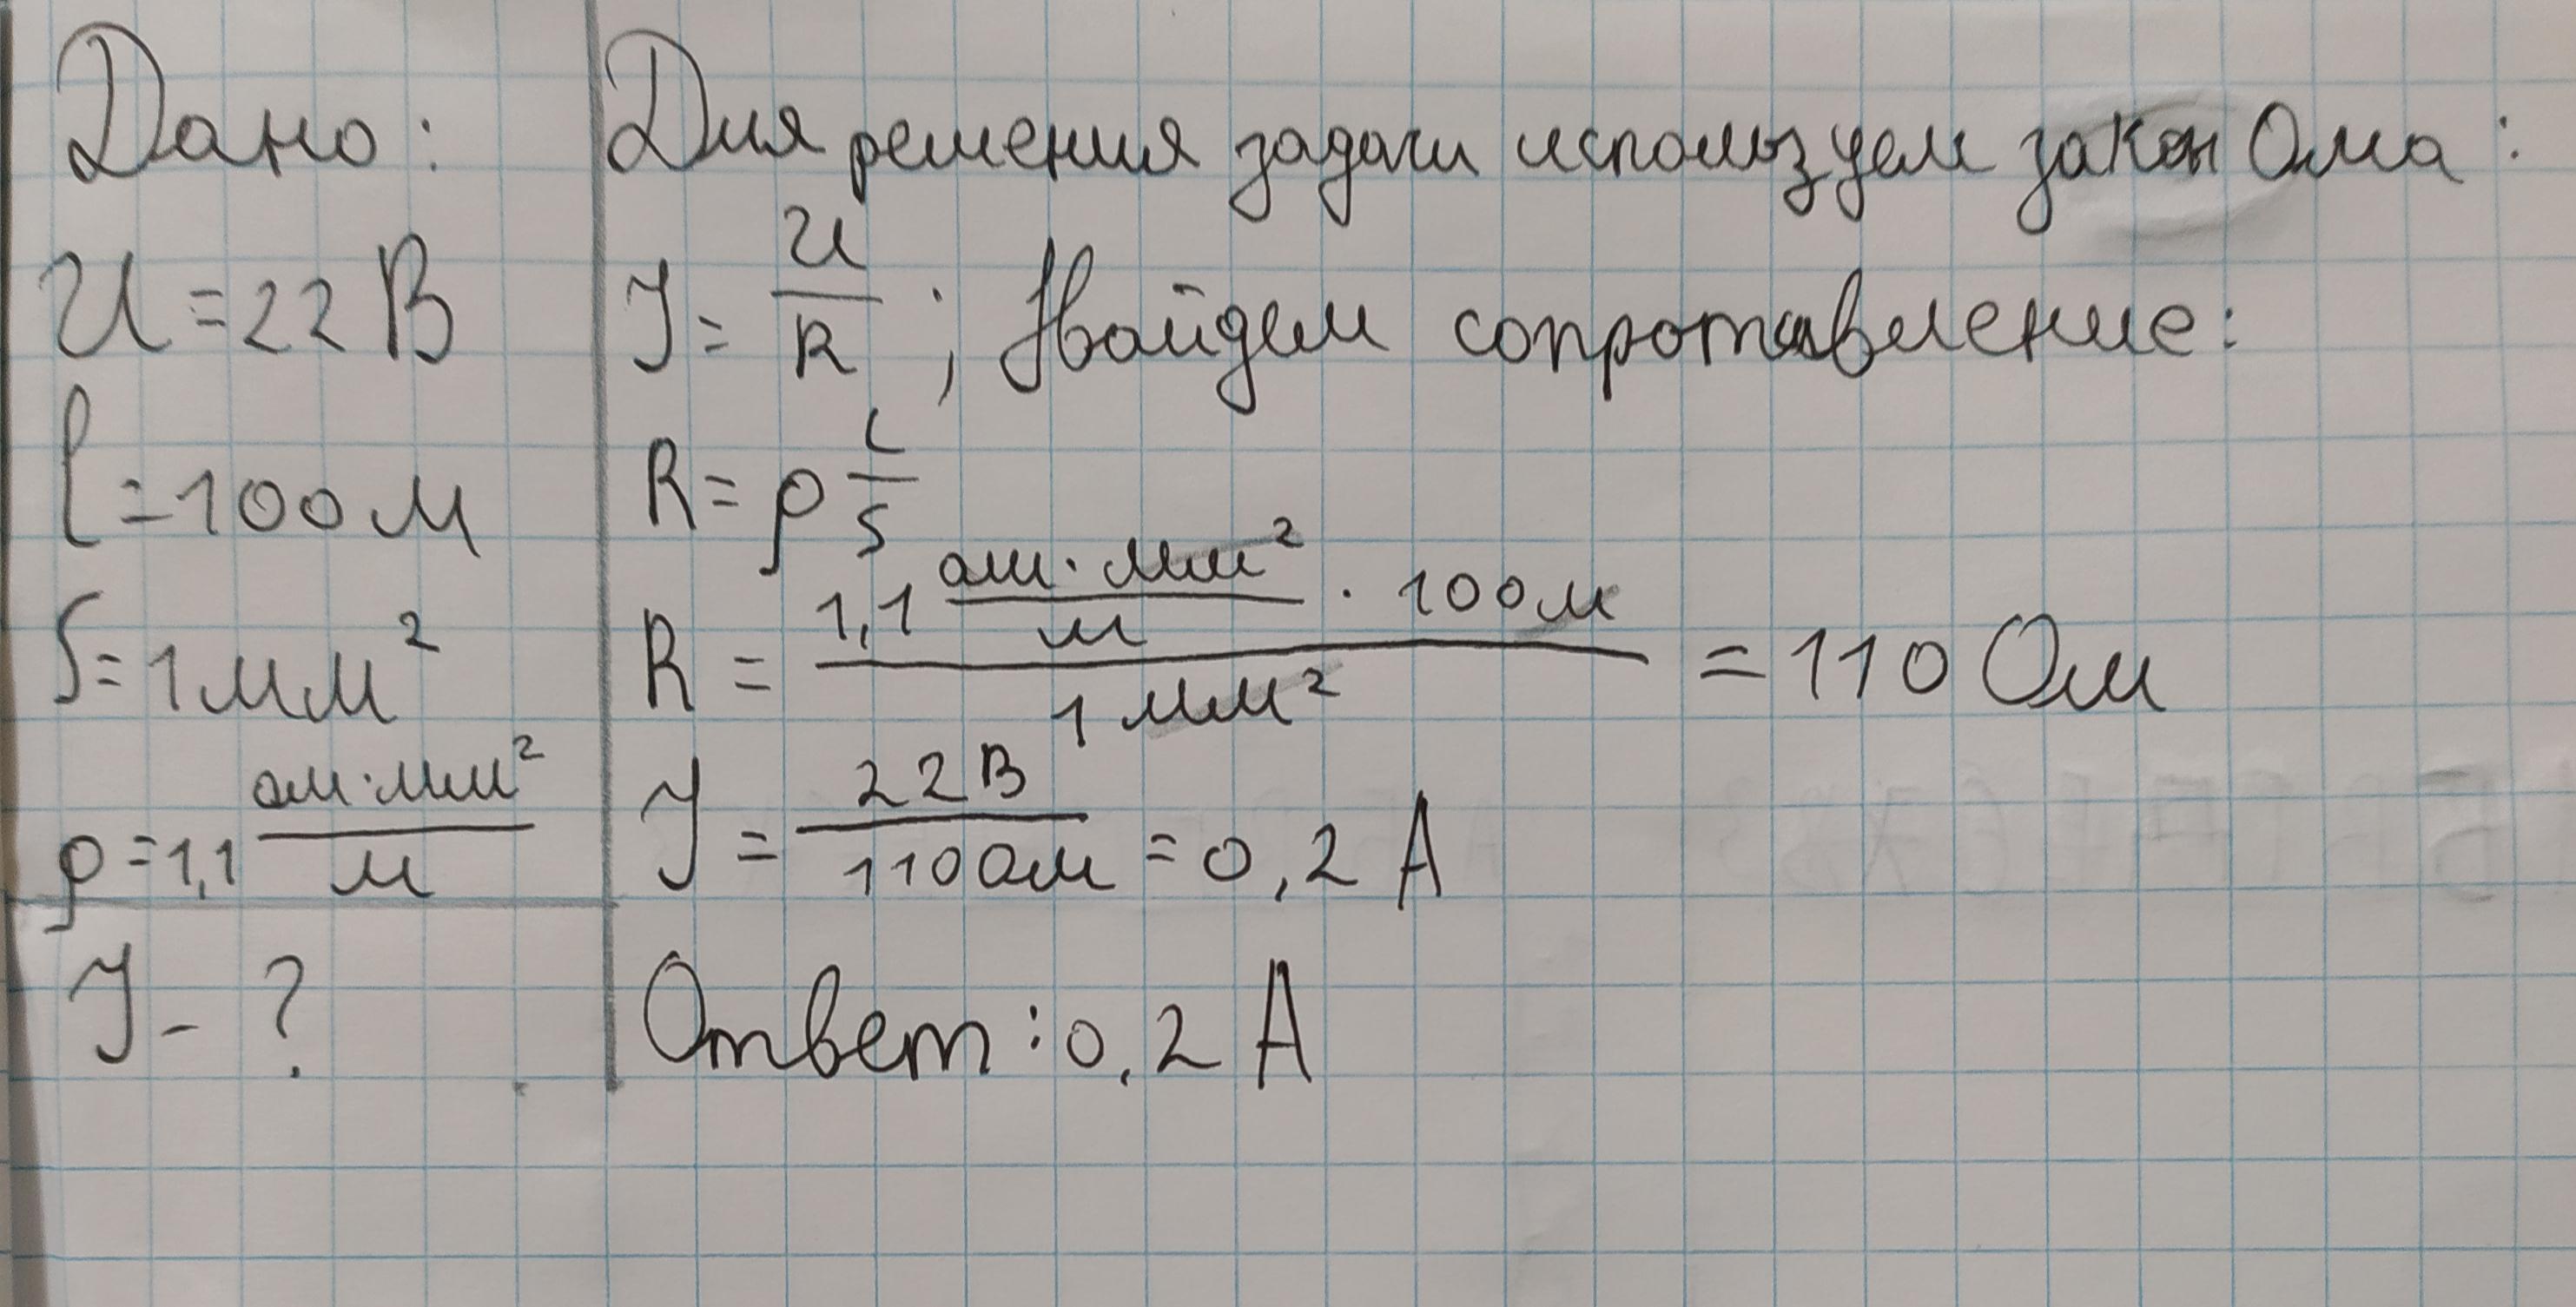 Дано:
U = 22 В
l = 100 м
S = 1 мм²
ρ = 1,1 ом·мм²/м
I - ?
Для решения задачи используем закон Ома:
I = U/R ; Найдем сопротивление:
R = ρ l/S
R = (1,1 ом·мм²/м · 100 м)/(1 мм²) = 110 Ом
I = 22 В/110 Ом = 0,2 А
Ответ: 0,2 А